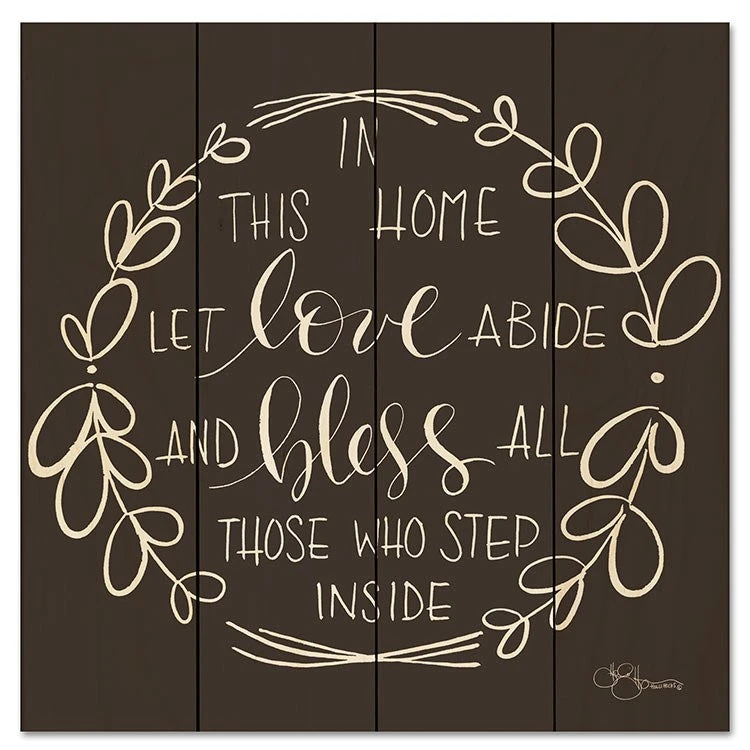 IN
THIS HOME
LET love ABIDE
AND bless ALL
THOSE WHO STEP
INSIDE